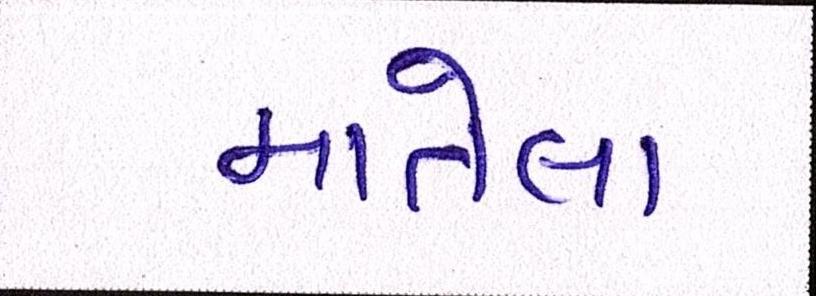 માતેલા